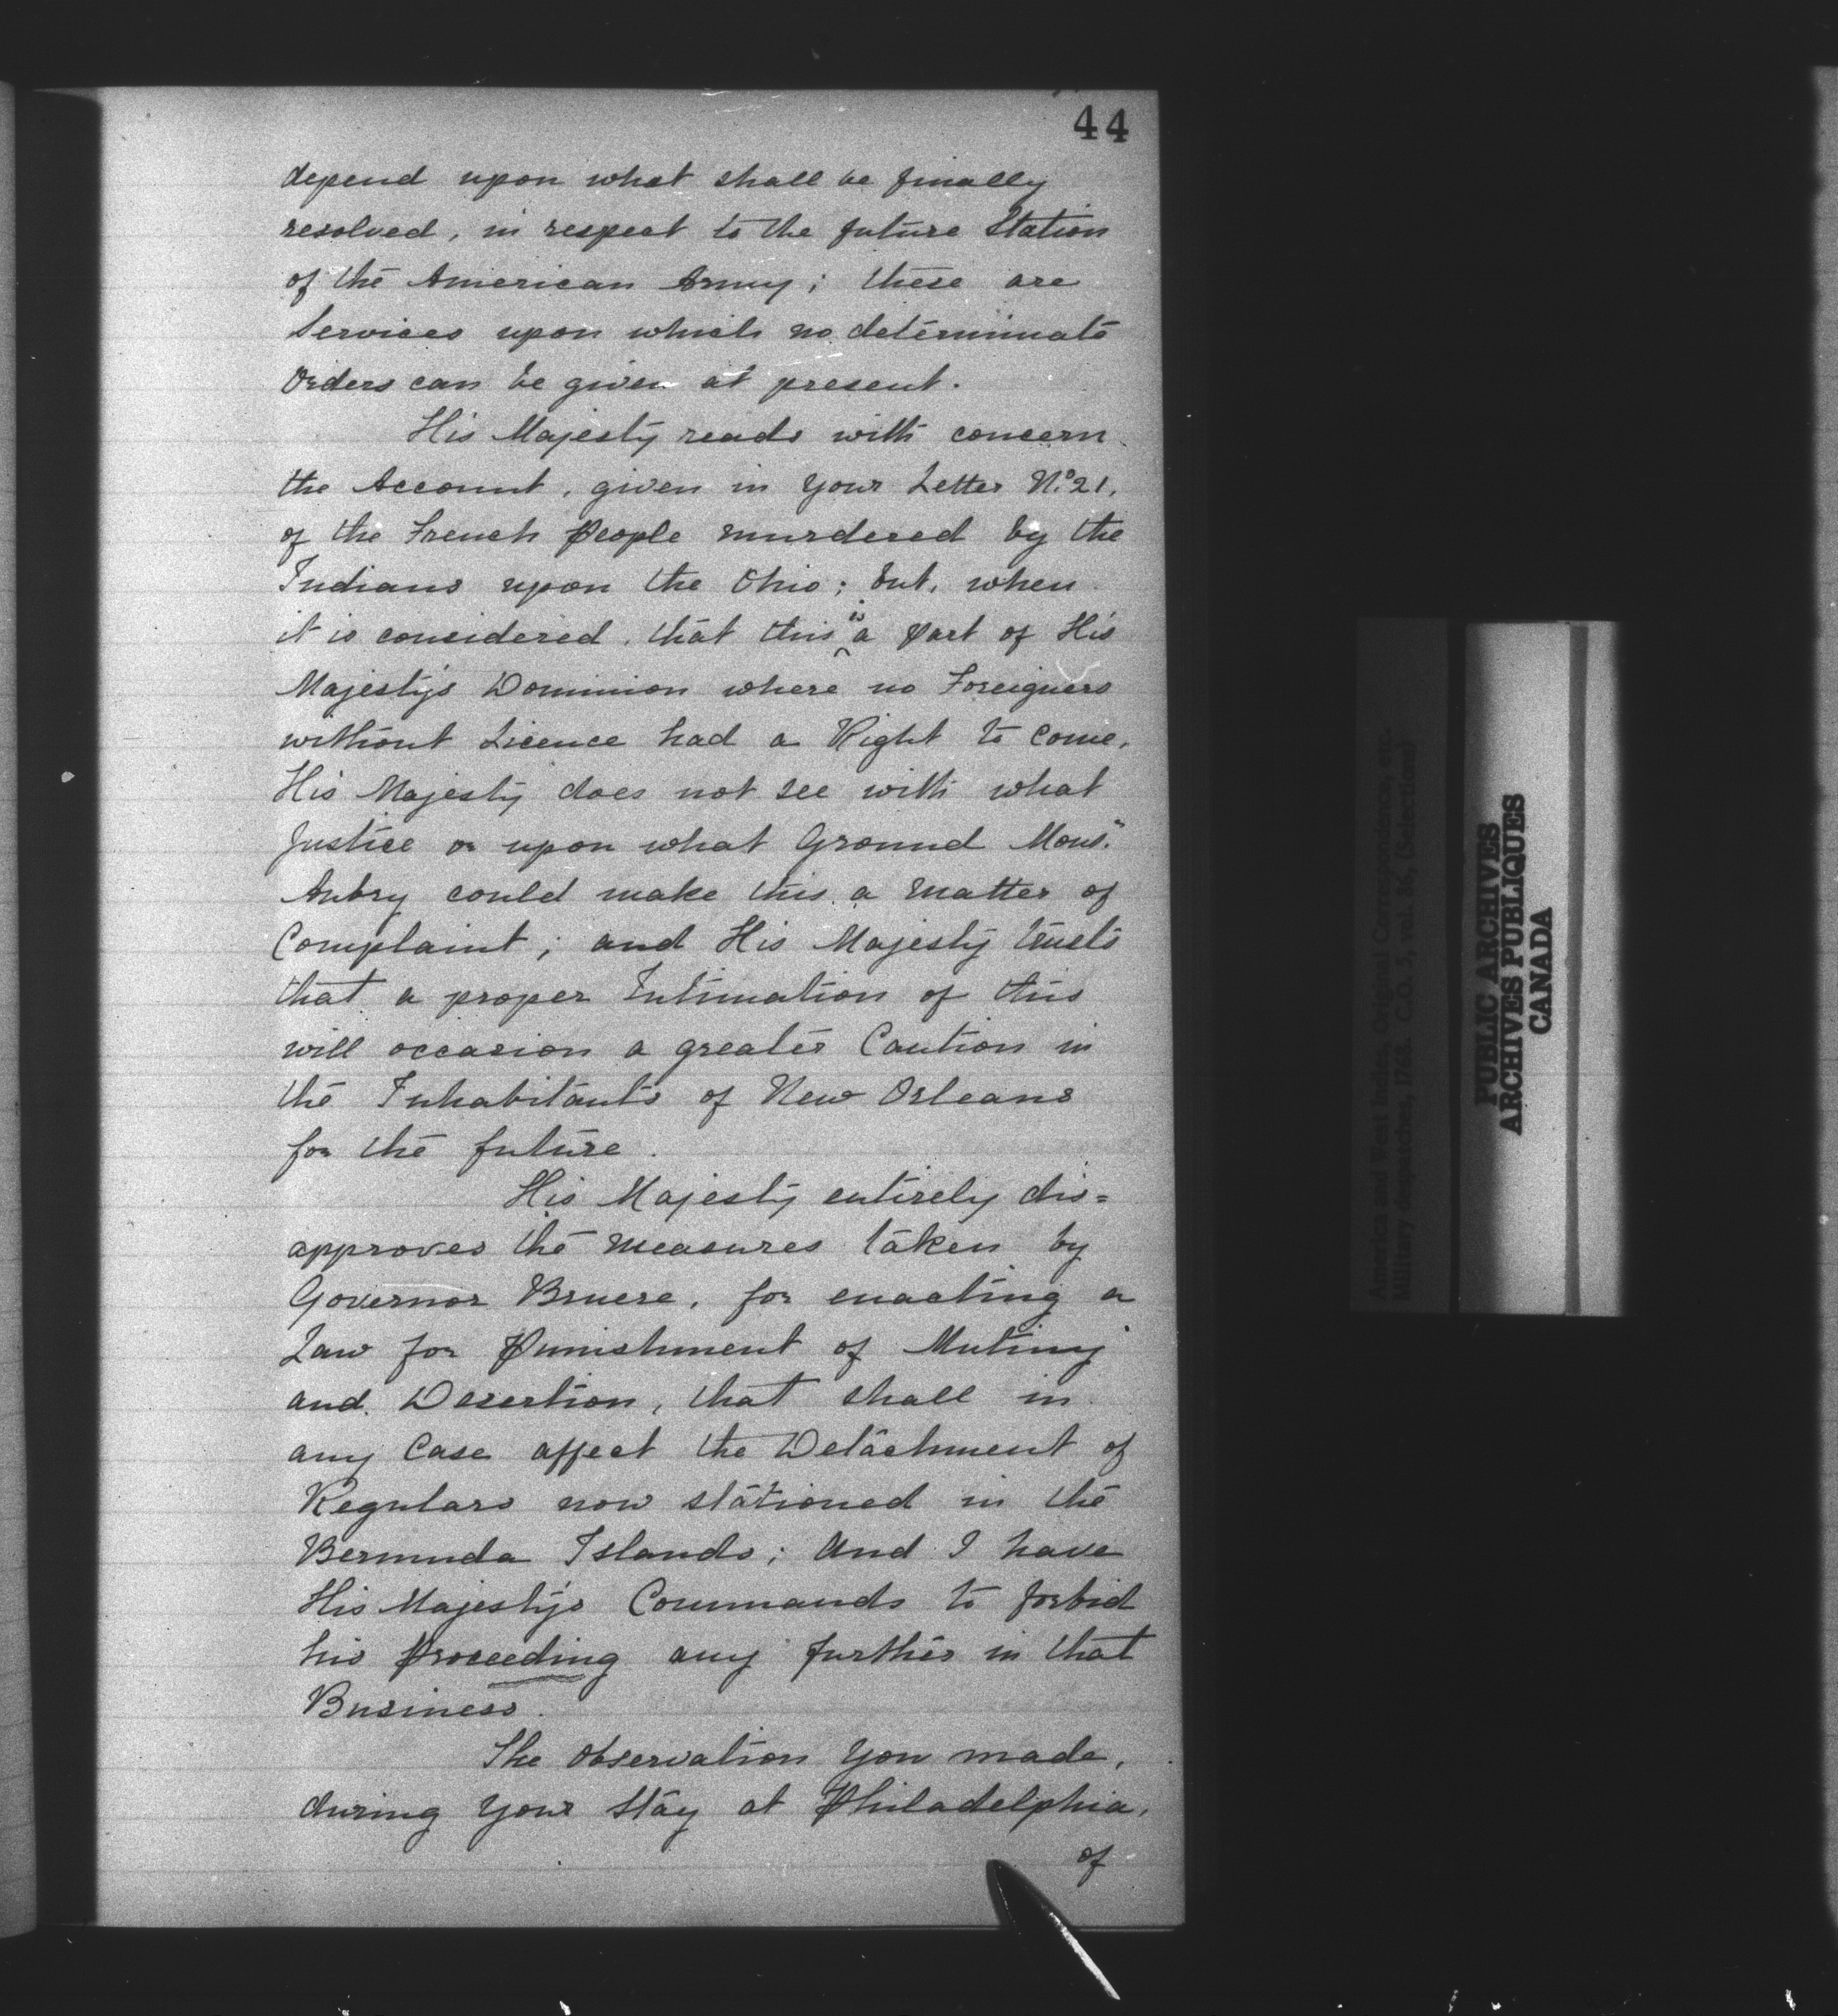 44
depend upon what shall be finally
resolved, in respect to the future Station
of the American Army; these are
Services upon which no determinate
Orders can be given at present.
His Majesty reads with concern
the Account, given in your Letter N.º 21,
of the French People murdered by the
Indians upon the Ohio; but, when
it is considered, that this is a part of His
Majesty's Dominion where no Foreigners
without Licence had a Right to come,
His Majesty does not see with what
Justice or upon what Ground Mons.r
Aubry could make this a matter of
Complaint; and His Majesty trusts
that a proper Intimation of this
will occasion a greater Caution in
the Inhabitants of New Orleans
for the future.
His Majesty entirely dis=
approves the measures taken by
Governor Bruere, for enacting a
Law for Punishment of Mutiny
and Desertion, that shall in
any Case affect the Detachment of
Regulars now stationed in the
Bermuda Islands; And I have
His Majesty's Commands to forbid
his proceeding any further in that
Business.
The observation you made,
during your Stay at Philadelphia,
of
America and West Indies, Original Correspondence, etc.
Military despatches, 1768. C.O. 5, vol. 86, (Selections)
PUBLIC ARCHIVES
ARCHIVES PUBLIQUES
CANADA